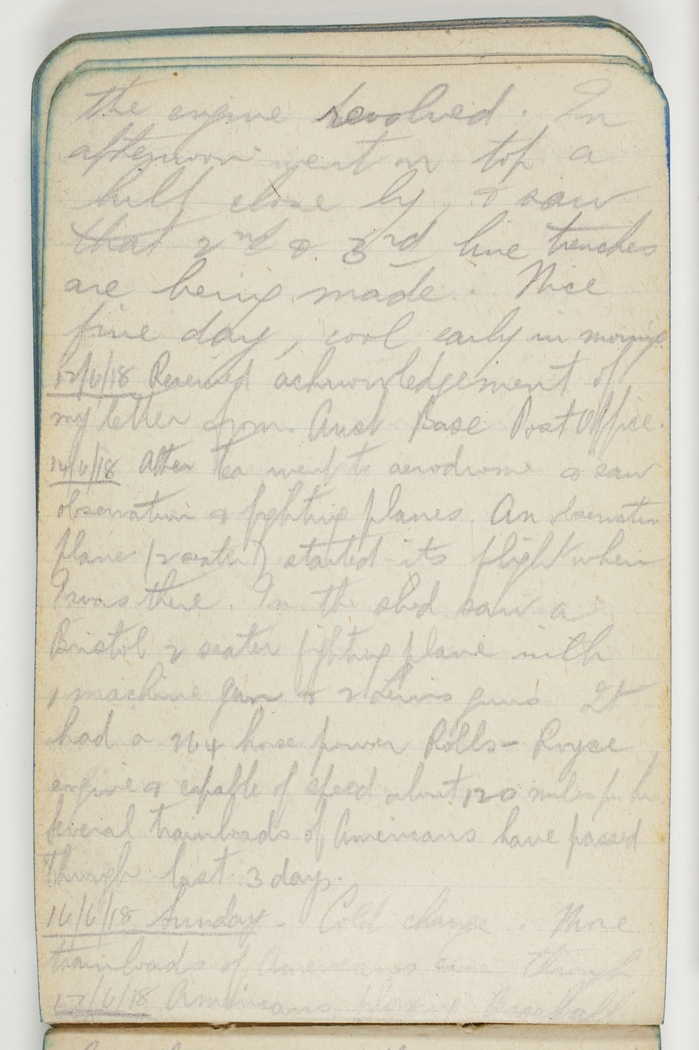 the engine revolved. In
afternoon went on top a
hill close by, & saw
that 2nd & 3rd line trenches
are being made. Nice
fine day, cool early in morning
12/6/18 Received acknowledgement of
my letter from Aust Base Post Office.
14/6/18 After tea went to aerodrome & saw
observation & fighting planes. An observation
plane (2 seater) started its flight when
I was there. In the shed saw a
Bristol 2 seater fighting plane with
1 machine gun & 2 Lewis guns It
had a 264 horse power Rolls-Royce
engine & capable of speed about 120 miles per hr
Several trainloads of Americans have passed
through last 3 days.
16/6/18 Sunday. Cold change. More
trainloads of Americans came through
17/6/18 Americans playing Baseball